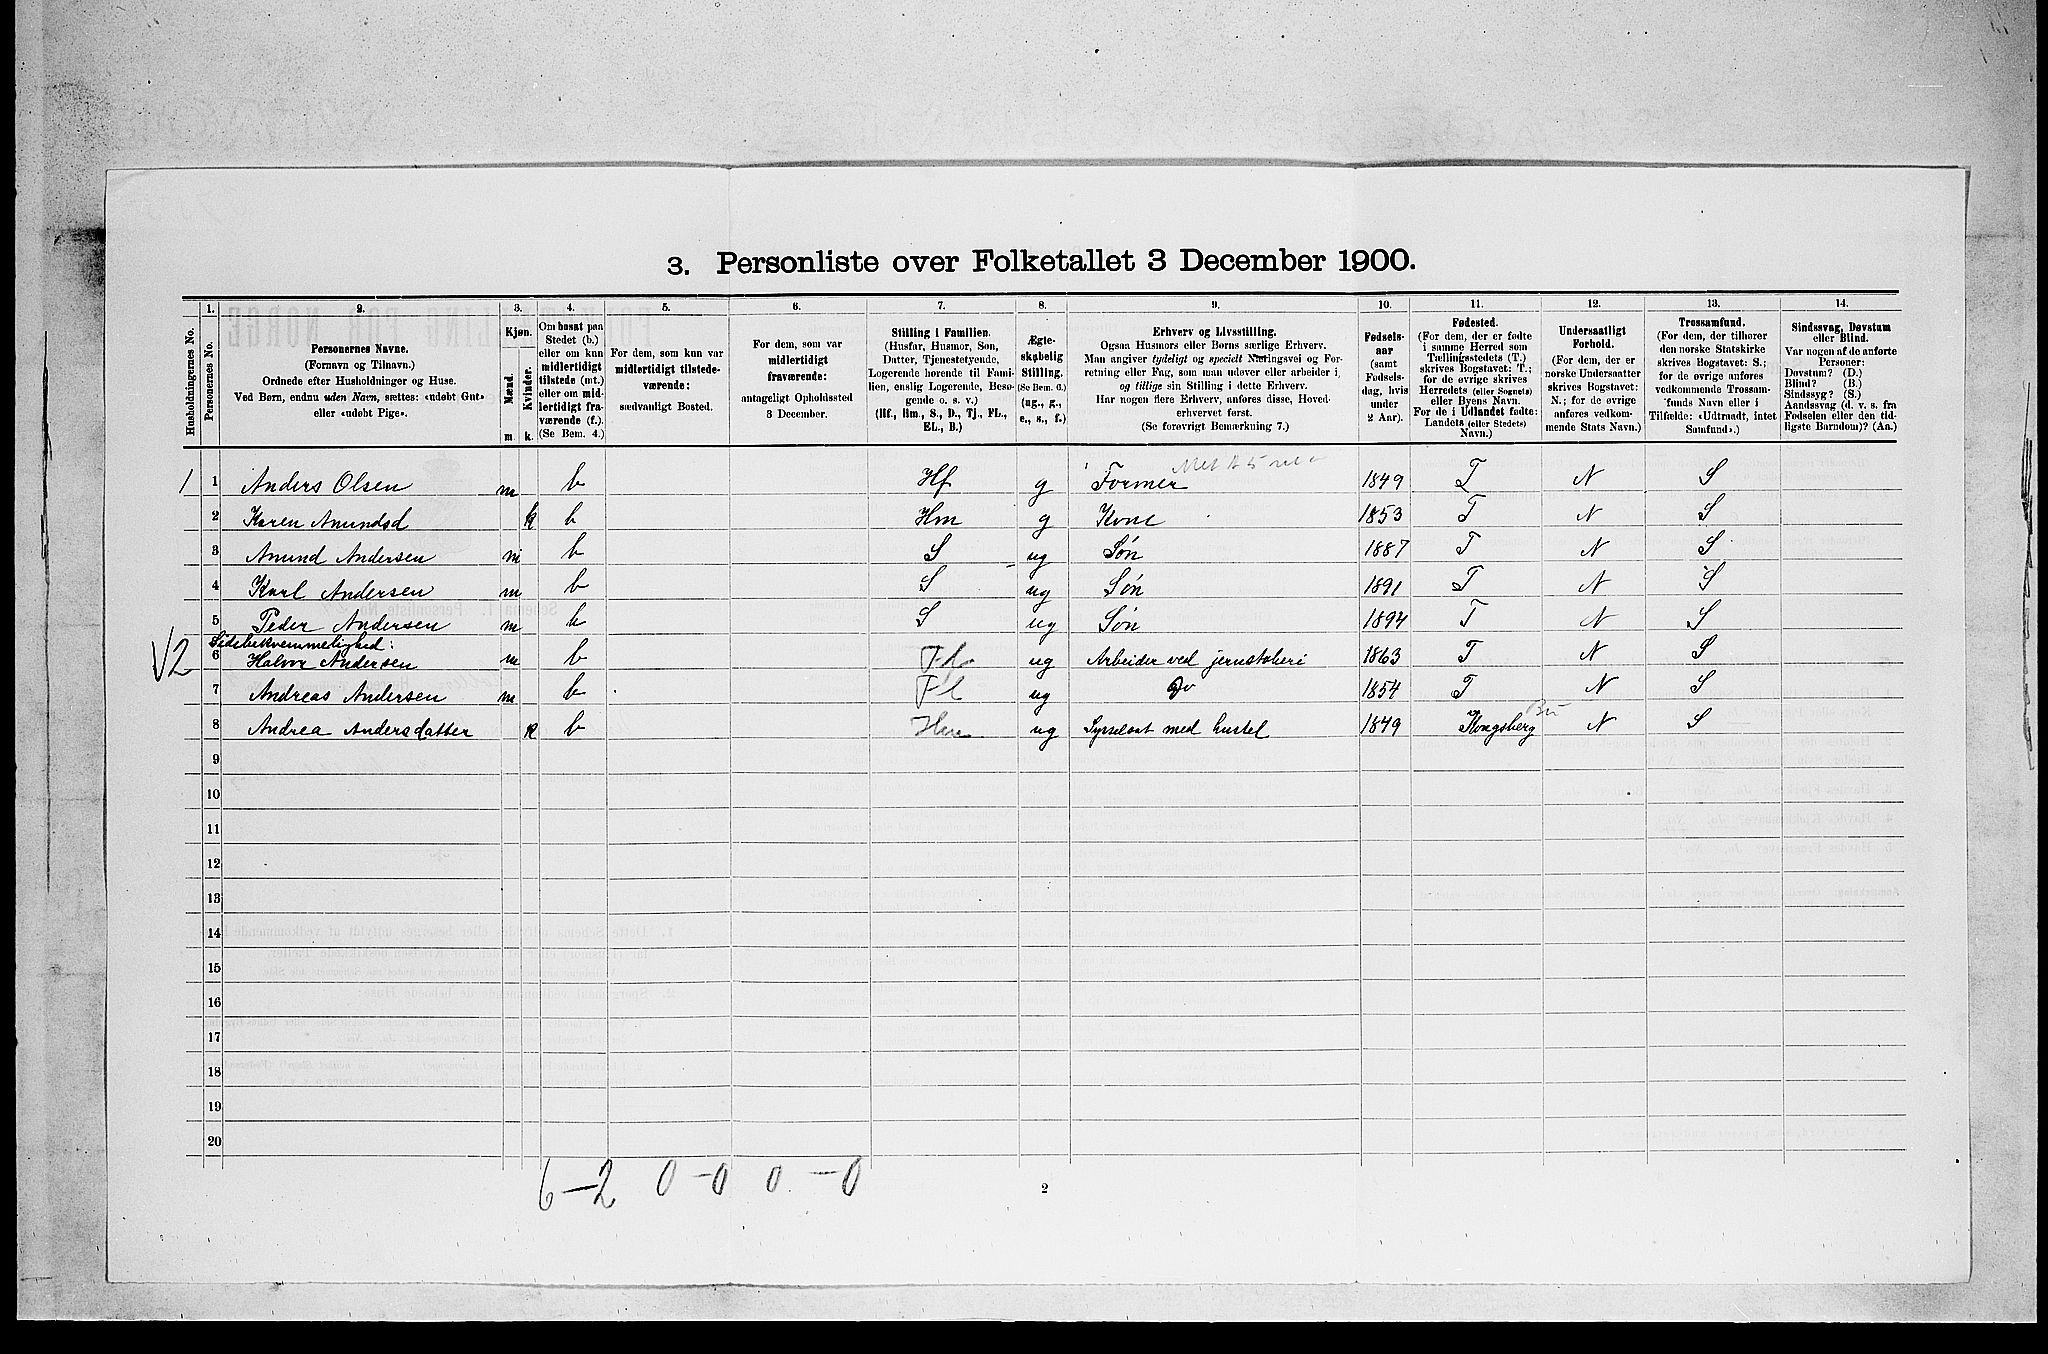 3. Personliste over Folketallet 3 December 1900.
Husholdningernes No.
1.
Personernes No.
2.
Personernes Navne.
(Fornavn og Tilnavn.)
Ordnede efter Husholdninger og Huse.
Ved Børn, endnu uden Navn, sættes: «udøbt Gut»
eller «udøbt Pige».
3.
Kjøn.
Mænd.
Kvinder.
m. k.
4.
Om bosat paa
Stedet (b.)
eller om kun
midlertidigt
tilstede (mt.)
eller om mid-
lertidigt fra-
værende (f.).
(Se Bem. 4.)
5.
For dem, som kun var
midlertidigt tilstede-
værende:
sædvanligt Bosted.
6.
For dem, som var
midlertidigt
fraværende:
antageligt Opholdssted
3 December.
7.
Stilling i Familien.
(Husfar, Husmor, Søn,
Datter, Tjenestetyende,
Logerende hørende til Fami-
lien, enslig Logerende, Besø-
gende o. s. v.)
(Hf., Hm., S., D., Tj., FL.,
EL., B.)
8.
Ægte-
skabelig
Stilling.
(Se Bem. 6.)
(ug., g.,
e., s., f.)
9.
Erhverv og Livsstilling.
Ogsaa Husmors eller Børns særlige Erhverv.
Man angiver tydeligt og specielt Næringsvei og For-
retning eller Fag, som man udøver eller arbeider i,
og tillige sin Stilling i dette Erhverv.
Har nogen flere Erhverv, anføres disse, Hoved-
erhvervet først.
(Se forøvrigt Bemærkning 7.)
10.
Fødsels-
aar
(samt
Fødsels-
dag, hvis
under
2 Aar).
11.
Fødested.
(For dem, der er fødte
i samme Herred som
Tællingsstedets (T.)
skrives Bogstavet: T.;
for de øvrige skrives
Herredets (eller Sognets)
eller Byens Navn.
For de i Udlandet fødte:
Landets (eller Stedets)
Navn.)
12.
Undersaatligt
Forhold.
(For dem, der er
norske Undersaatter
skrives Bogstavet:
N.; for de øvrige
anføres vedkom-
mende Stats Navn.)
13.
Trossamfund.
(For dem, der tilhører
den norske Statskirke
skrives Bogstavet: S.;
for de øvrige anføres
vedkommende Trossam-
funds Navn eller i
Tilfælde: «Udtraadt, intet
Samfund».)
14.
Sindssvag, Døvstum
eller Blind.
Var nogen af de anførte
Personer:
Døvstum? (D.)
Blind? (B.)
Sindssyg? (S.)
Aandssvag (d. v. s. fra
Fødselen eller den tid-
ligste Barndom)? (Aa.)
1 1 Anders Olsen m b Hf g Former 1849 T N S
2 Karen Amundsd k b Hm g Kone 1853 T N S
3 Amund Andersen m b S ug Søn 1887 T N S
4 Karl Andersen m b S ug Søn 1891 T N S
5 Peder Andersen m b S ug Søn 1894 T N S
Sidebekvemmelighed:
V2 6 Halvor Andersen m b Fl ug Arbeider ved jernstøberi 1863 T N S
7 Andreas Andersen m b Fl ug Do 1854 T N S
8 Andrea Andersdatter k b Hm ug Sysselsat med husstel 1849 Kongsberg N S
9
10
11
12
13
14
15
16
17
18
19
20
6-2 0-0 0-0
2